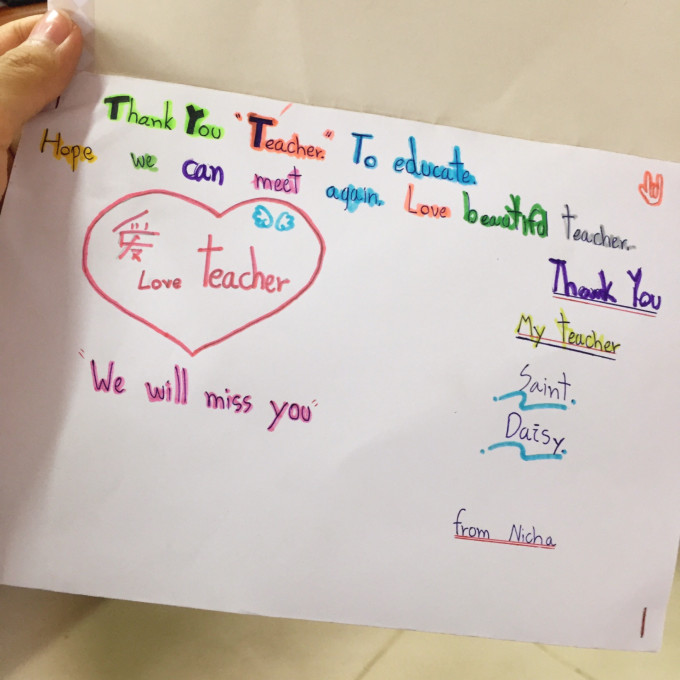 Thank You "Teacher." To educate.
Hope we can meet again. Love beautiful teacher.
爱
Love teacher
"We will miss you"
Thank You
My teacher
Saint.
Daisy.
from Nicha